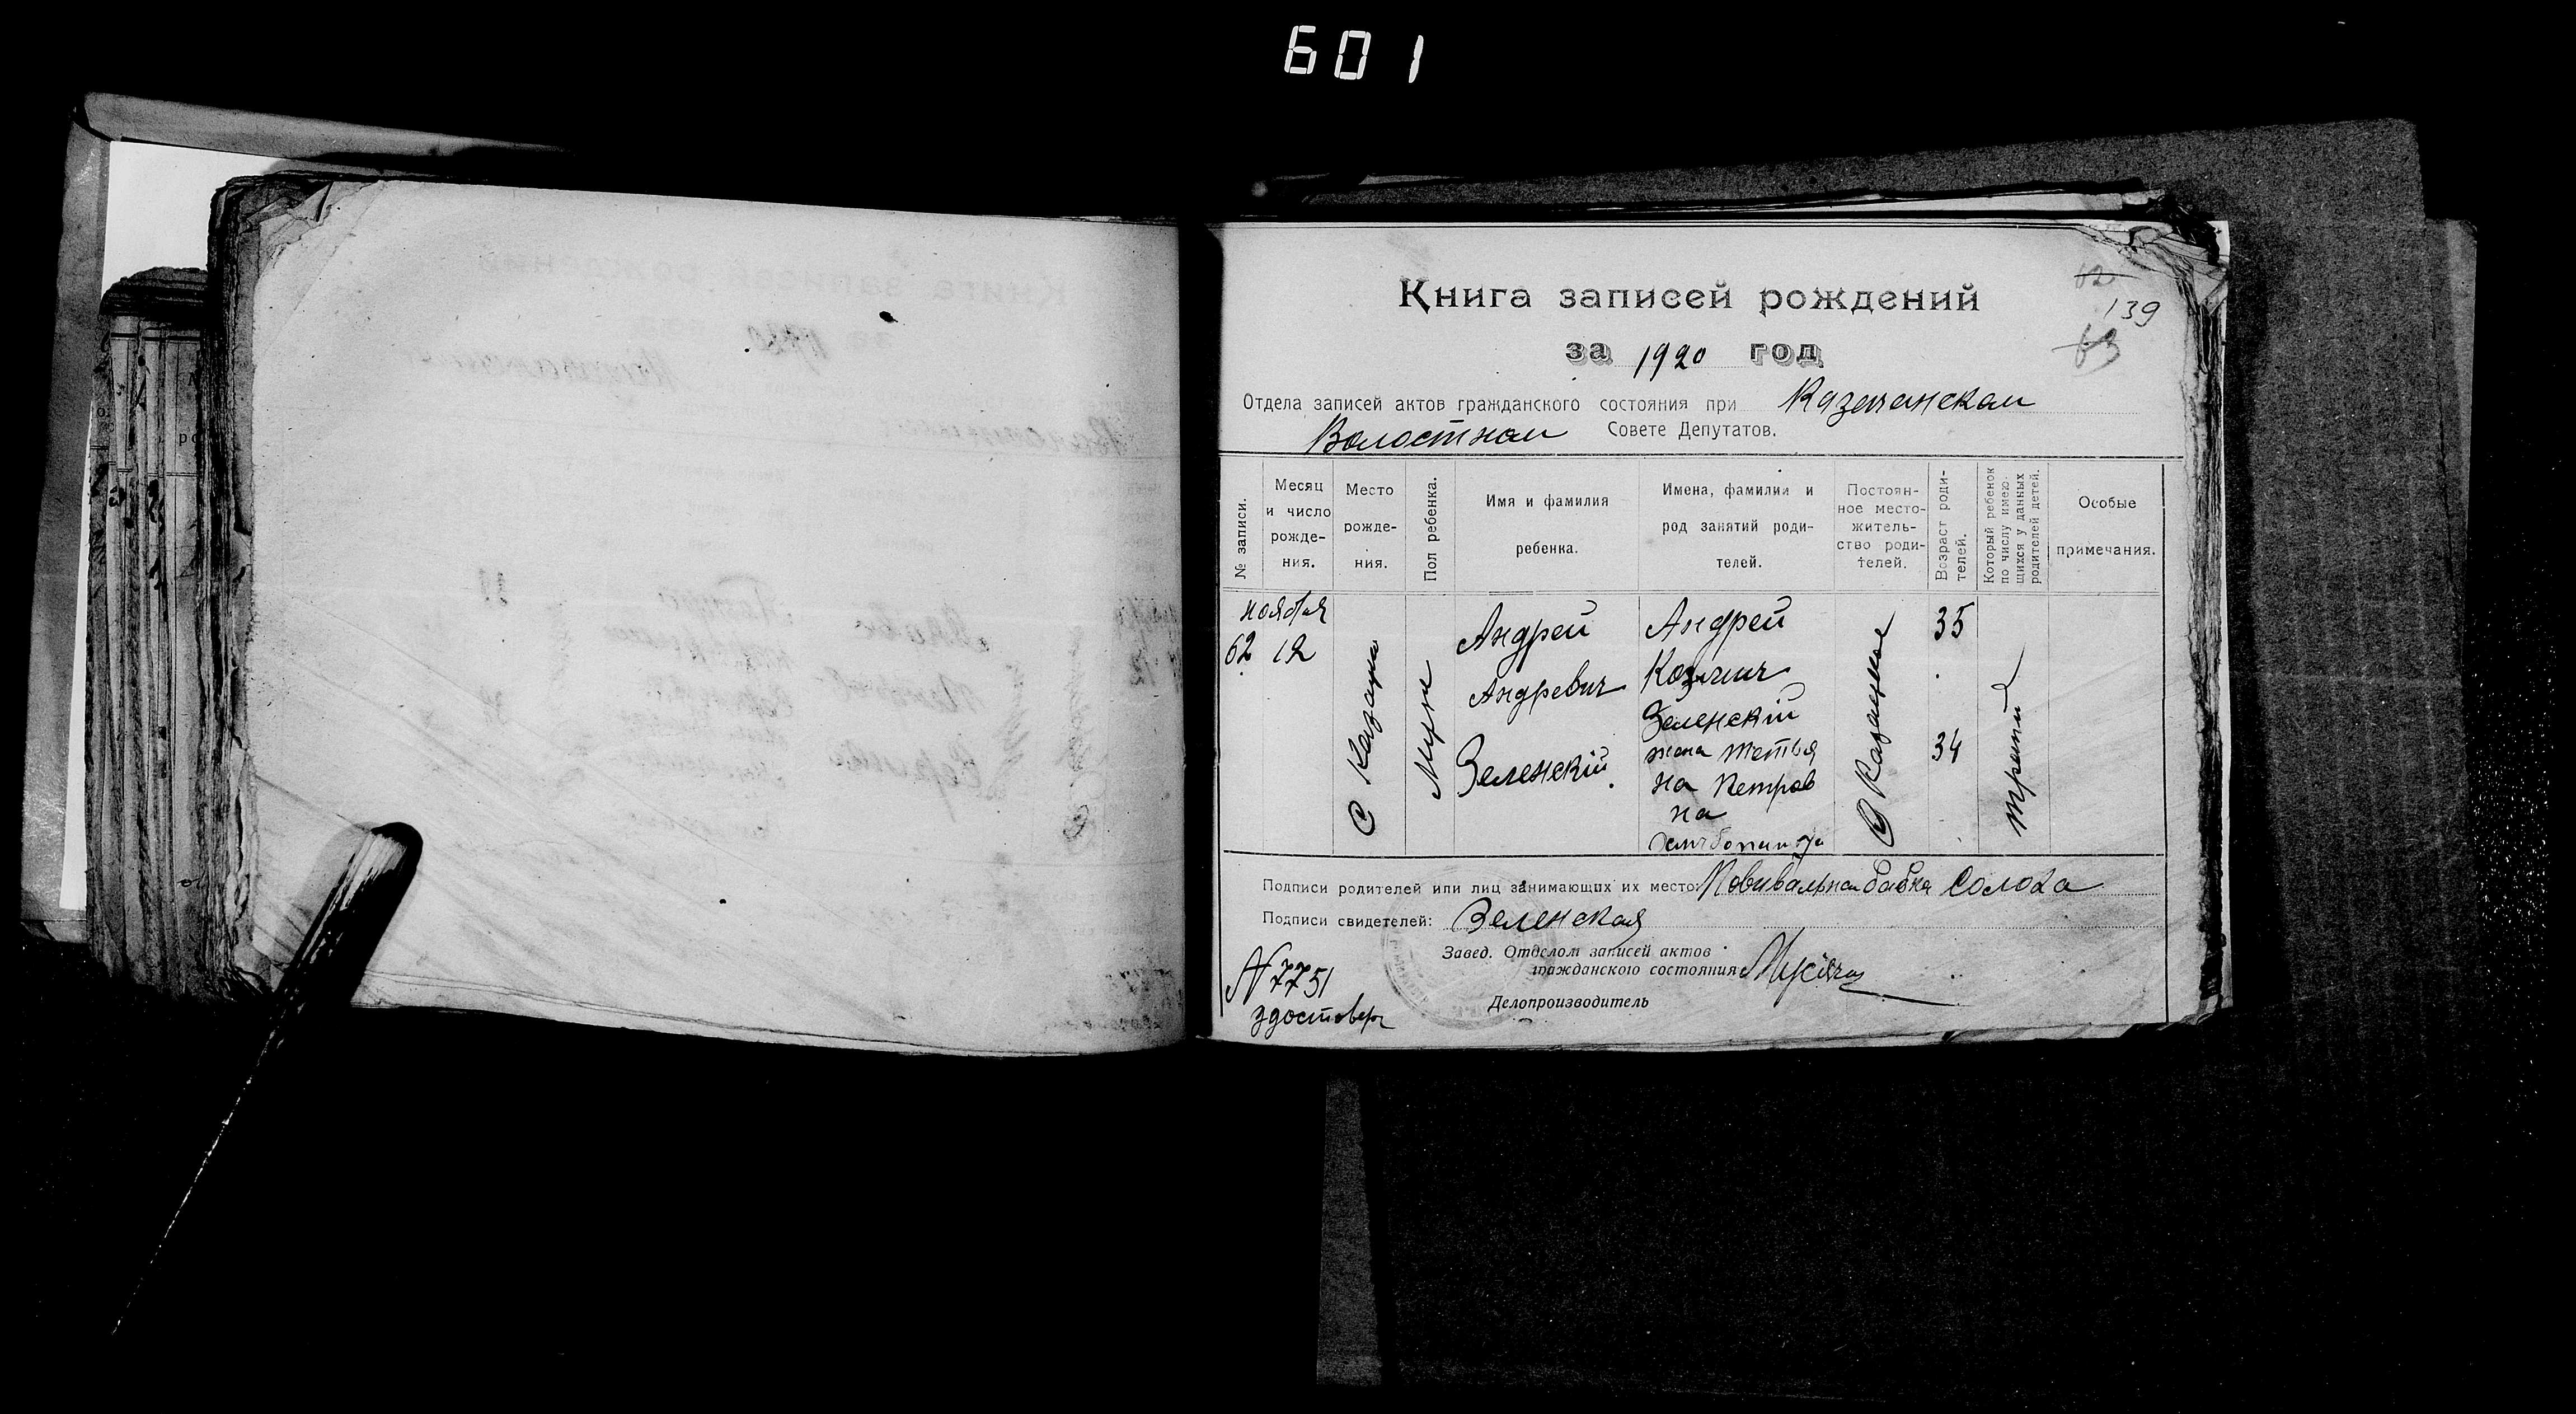 601
62
139
63
Книга записей рождений
за 1920 год
Отдела записей актов гражданского состояния при Казачанском
Волостном Совете Депутатов.
№ записи.
Месяц и число рожде- ния.
Место рожде- ния.
Пол ребенка.
Имя и фамилия ребенка.
Имена, фамилии и род занятий роди- телей.
Постоян- ное место- житель- ство роди- телей.
Возраст роди- телей.
Который ребенок по числу имею- щихся у данных родителей детей.
Особые примечания.
ноября
62 12
С Казацкое
Муж
Андрей
Андревич
Зеленскій.
Андрей
Зеленскій
жена Тетья
на Петров
на
С Казацкое
35
34
третий
Подписи родителей или лиц занимающих их место: Повивальная бабка Солоха
Подписи свидетелей: Зеленская
Завед. Отделом записей актов
гражданского состояния
Делопроизводитель
N 7751